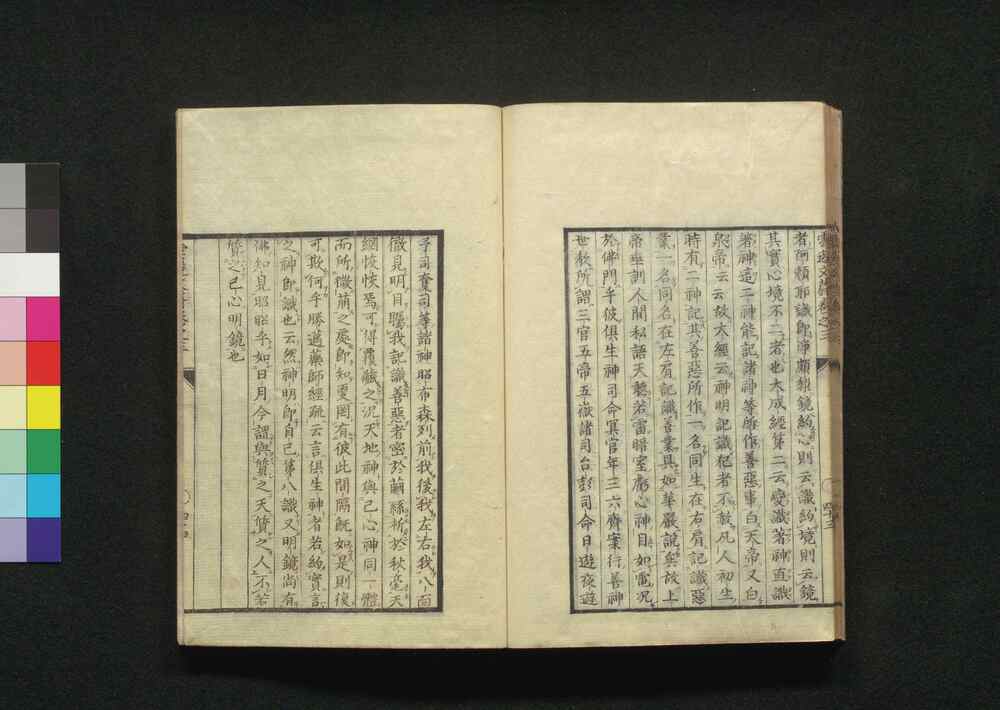 者阿頼耶識即淨頗梨鏡約心則云識約境則云鏡
其實心境不二者也大成經第二云變識著神直識
著神這二神能記諸神等所作善惡事白天帝又白
躬帝云云故大經云神明記識犯者不赦凡人初生
時有二神記其善惡所作一名同生在右肩記識惡
業一名同名在左肩記識善業具如華嚴說矣故上
帝垂訓人間私語天聽若雷暗室虧心神目如電況
於佛門乎彼俱生神司命冥官年三六齊案行善神
世教所謂三官五帝五嶽諸司台彭司命日遊夜遊
子司奏司等諸神昭布森列前我後我左右我八面
徹見明目矚我記識善惡者密於繭絲析於秋毫天
網恢恢焉可得覆藏之況天地神與己心神同一體
而所微萠之處即知更罔有彼此間隔旣如是則復
可欺何乎勝邁藥師經疏云言俱生神者若約實言
之神即識也云然神明即自己第八識又明鏡尚有
佛知見昭昭乎如日月今謂與贊之天贊之人不若
贊之己心明鏡也